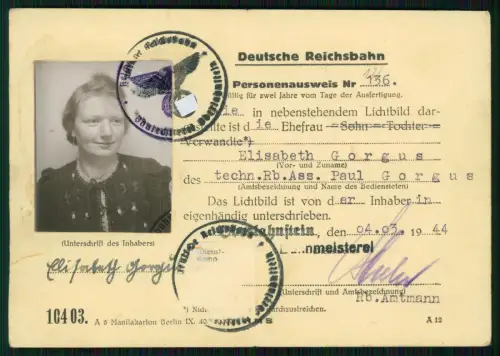 Deutsche Reichsbahn
Personenausweis Nr 136.
Gültig für zwei Jahre vom Tage der Ausfertigung.
Die in nebenstehendem Lichtbild dar-
gestellte ist die Ehefrau Sohn Tochter
Verwandte*)
Elisabeth Gorgus
(Vor- und Zuname)
des techn.Rb.Ass. Paul Gorgus
(Amtsbezeichnung und Name des Bediensteten)
Das Lichtbild ist von der Inhaberin
eigenhändig unterschrieben.
, den 04.03. 1944
nmeisterei
(Unterschrift des Inhabers)
Elisabeth Gorgus
(Unterschrift und Amtsbezeichnung)
Rb.Amtmann
durchzustreichen.
104 03. A 6 Manilakarton Berlin IX. A 12